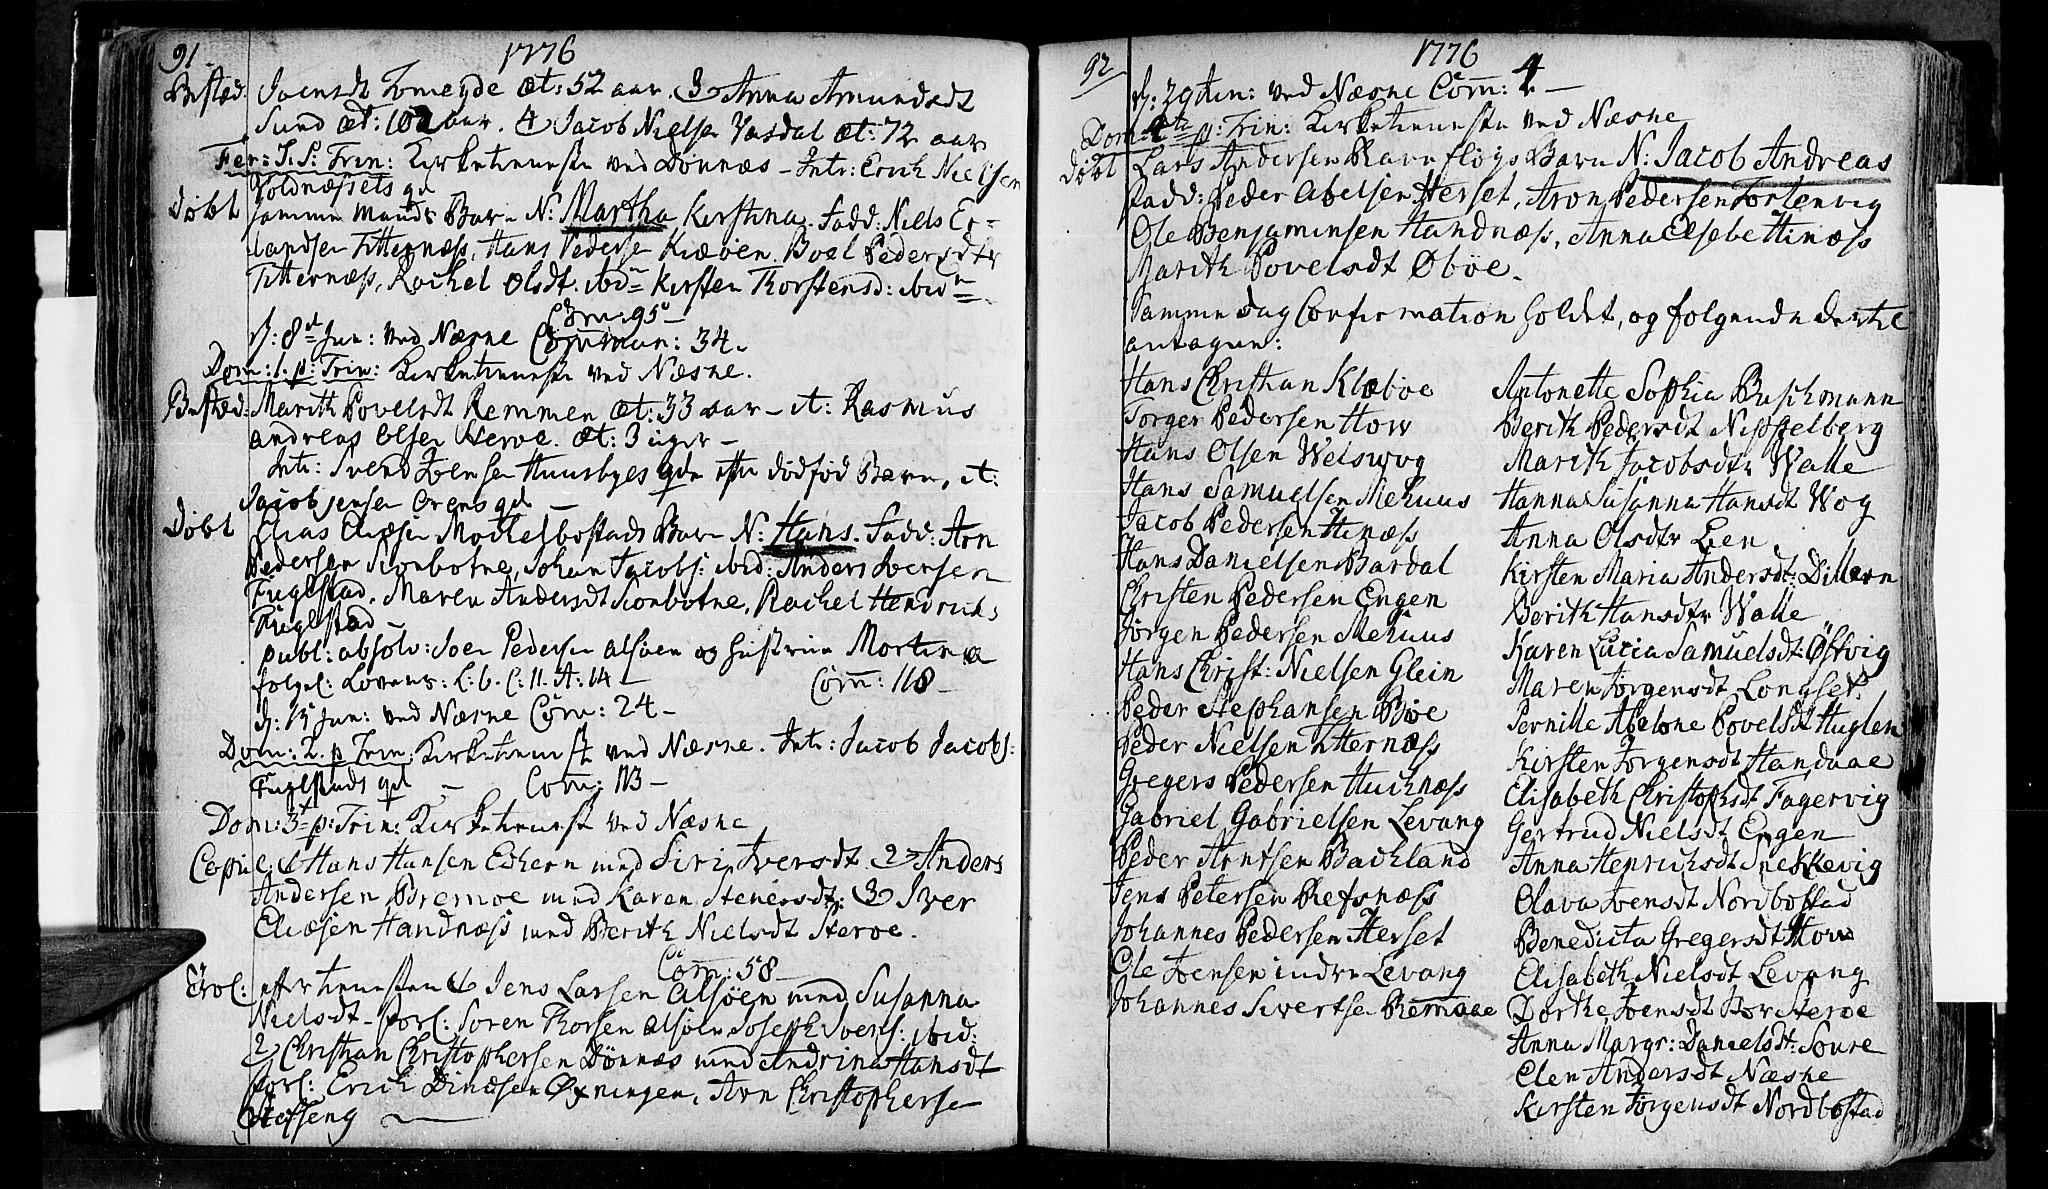 91
1776
Bested: Joensdt Tomejde æt: 52 aar. 3 Anna Amundsdt
Sund æt: 102 aar. 4 Jacob Nielsen Vasdal æt: 72 aar
Fer: I. S: Trin: Kirketienesten ved Dönnæs – Intr: Erich Nielsen
Voldnæssets qd
Döbt samme mands Barn N: Martha Kirstina. Fadd: Niels Er-
landsen Titternæss, Hans Pedersen Kiæöen. Boel Pedersdtr
Titternæss, Rachel Olsdt. ibidn Kirsten Thorstensd: ibidn
Com: 95 –
d: 8d Jun: ved Næsne Commun: 34.
Dom: 1. p: Trin: Kirketienesten ved Næsne.
Bested: Marith Povelsdt Remmen æt: 33 aar – it: Rasmus
Andreas Olsen Herøe. æt: 3 uger –
Intr: Svend Joensen Huusbyes qde efter dödföd Barn, it:
Jacob Jensen Orens qd –
Döbt Elias Eliæsen Mochelbostads Barn N: Hans. Fadd: Arn
Pedersen Sionbotne, Johan Jacobs: ibid: Anders Iversen
Fuglstad. Maren Andersdt Sionbotne, Rachel Hendrichs
Fuglstad –
publ: absolv: Joen Pedersen Alsöen og hustrue Mortina
folgel: Lovens: L: 6. C: 11. A: 14 – Com: 118 –
d: 15 Jun: ved Næsne Com: 24 –
Dom: 2. p Trin: Kirketienest ved Næsne. Intr: Jacob Jacobs:
Fuglstads qd – Com: 113 –
Dom: 3t p: Trin: Kirketienest ved Næsne
Copul: 1 Hans Hansen med Siri Iversdt. 2 Anders
Andersen Bremoe med Karen Stenersdt: 3 Iver
Eliæsen Handnæss med Berith Nielsdt Herøe.
Com: 58 –
Trol: efter tienesten 1 Jens Larsen Alsöen med Susanna
Nielsdt – forl: Soren Thorsen Alsöen Joseph Joens: ibid:
2 Christian Christophersen Dönnæs med Andrina Hansdt
forl: Erich Dinesen Øxningen, Arn Christophersen
Stafseng
92
1776
d: 29 Jun: ved Næsne Com: 4 –
Dom 4ta p: Trin: Kirketienesten ved Næsne
Döbt Lars Andersen Ravnflogs Barn N: Jacob Andreas
Fadd: Peder Abelsen Herset, Aron Pedersen Fortenvig
Ole Benjaminsen Handnæss, Anna Elsebet Tinæss
Marith Povelsdt Øböe.
Samme dag Confirmation holdet, og folgende dertil
antagne:
Hans Christian Klæboe
Torger Pedersen How
Hans Olsen Welswog
Hans Samuelsen Mehuus
Jacob Pedersen Tinæss
Hans Danielsen Bardal
Christen Pedersen Engen
Jörgen Pedersen Mehuus
Hans Christ: Nielsen Glein
Peder Stephansen Böe
Peder Nielsen Titternæss
Gregers Pedersen Huchnæss
Gabriel Gabrielsen Levang
Peder Arntsen Bachland
Jens Petersen Refsnæss
Johannes Pedersen Herset
Ole Joensen indre Levang
Johannes Sivertsen Remaae
Antonette Sophia Buschmann
Berith Pedersdt Nisselberg
Marith Jacobsdtr Walle
Hanna Susanna Hansdt Wog
Anna Olsdtr Lien
Kirsten Maria Andersdt: Dillern
Berith Hansdtr Walle
Karen Lucia Samuelsdt: Östvig
Maren Jörgensdt Longset
Pernille Abelone Povelsdt Huglen
Kirsten Jörgensdt Handaae
Elisabeth Christophsdt Fagervig
Gertrud Nielsdt Engen
Anna Henrichsdt Snekkevig
Olava Joensdt Nordbostad
Benedicta Gregersdt How
Elisabeth Nielsdt Levang
Dorthe Joensdt Herøe
Anna Margr: Danielsdt: Soure
Elen Andersdt Næsne
Kirsten Jörgensdt Nordbostad